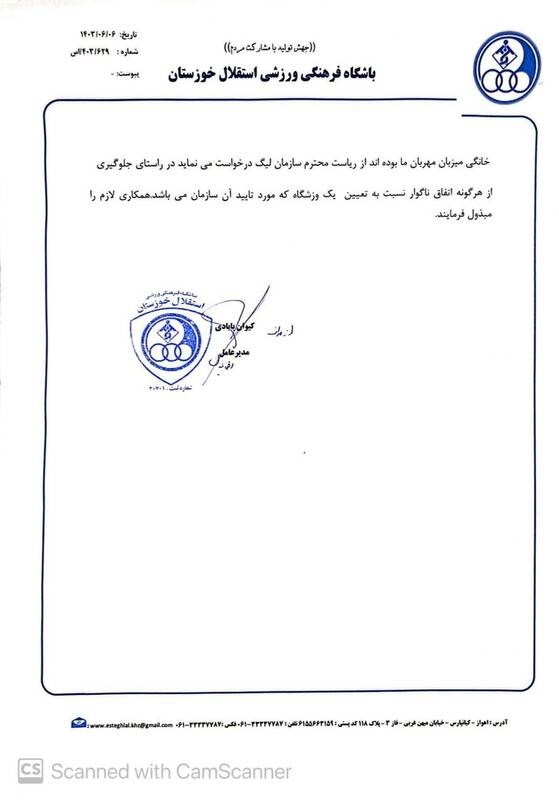 تاریخ: ۱۴۰۳/۰۶/۰۶
((جهش تولید با مشارکت مردم))
شماره : ۴۰۳/۶۲۹/اس
باشگاه فرهنگی ورزشی استقلال خوزستان
پیوست: -
خانگی میزبان مهربان ما بوده اند از ریاست محترم سازمان لیگ درخواست می نماید در راستای جلوگیری
از هرگونه اتفاق ناگوار نسبت به تعیین یک وزشگاه که مورد تایید آن سازمان می باشد.همکاری لازم را
مبذول فرمایند.
باشگاه فرهنگی ورزشی
استقلال خوزستان
کیوان بابادی
مدیرعامل
شماره ثبت :۲۰۷۰۱
آدرس : اهواز - کیانپارس - خیابان میهن غربی - فاز ۳ - پلاک ۱۱۸ کد پستی : ۶۱۵۵۶۶۳۱۵۹ تلفن : ۳۳۳۷۷۸۷-۰۶۱ فکس :۳۳۳۷۷۸۷-۰۶۱ www.esteghlal.khz@gmail.com :
CS Scanned with CamScanner